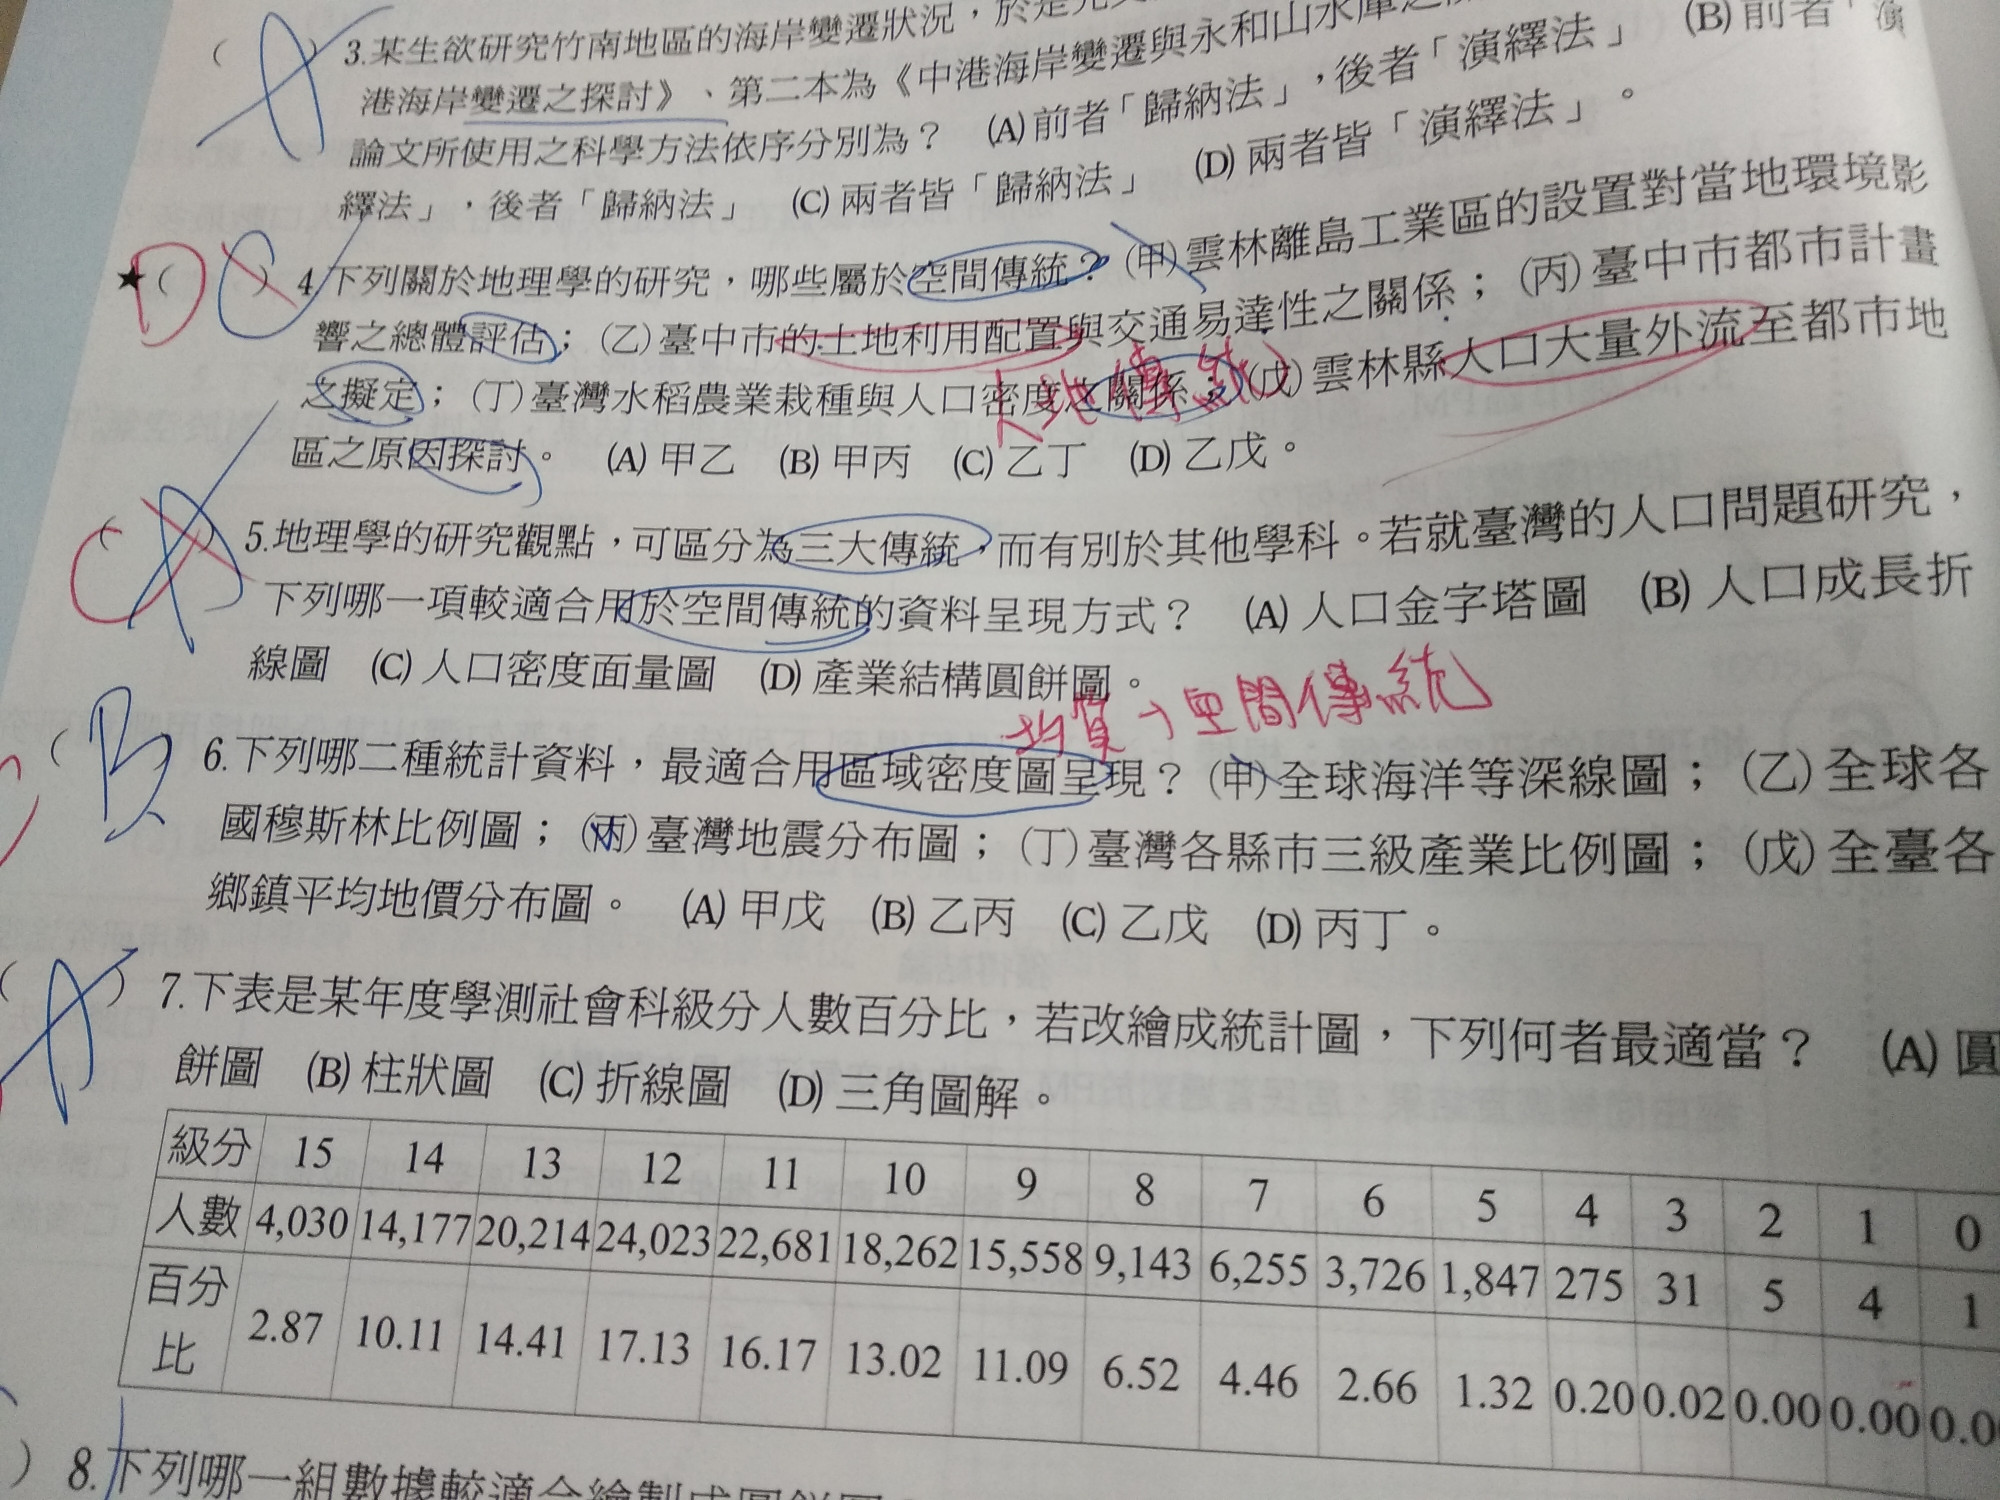 3.某生欲研究竹南地區的海岸變遷狀況，於是
港海岸變遷之探討》、第二本為《中港海岸變遷與永和山水庫之
論文所使用之科學方法依序分別為？ (A)前者「歸納法」，後者「演繹法」 (B)前者「演
繹法」，後者「歸納法」 (C)兩者皆「歸納法」 (D)兩者皆「演繹法」。
D C
★( ) 4.下列關於地理學的研究，哪些屬於空間傳統？(甲)雲林離島工業區的設置對當地環境影
響之總體評估；(乙)臺中市的土地利用配置與交通易達性之關係；(丙)臺中市都市計畫
之擬定；(丁)臺灣水稻農業栽種與人口密度之關係；(戊)雲林縣人口大量外流至都市地
人地傳統
區之原因探討。 (A)甲乙 (B)甲丙 (C)乙丁 (D)乙戊。
C A
( ) 5.地理學的研究觀點，可區分為三大傳統，而有別於其他學科。若就臺灣的人口問題研究，
下列哪一項較適合用於空間傳統的資料呈現方式？ (A)人口金字塔圖 (B)人口成長折
線圖 (C)人口密度面量圖 (D)產業結構圓餅圖。
均質→空間傳統
B
( ) 6.下列哪二種統計資料，最適合用區域密度圖呈現？(甲)全球海洋等深線圖；(乙)全球各
國穆斯林比例圖；(丙)臺灣地震分布圖；(丁)臺灣各縣市三級產業比例圖；(戊)全臺各
鄉鎮平均地價分布圖。 (A)甲戊 (B)乙丙 (C)乙戊 (D)丙丁。
A
( ) 7.下表是某年度學測社會科級分人數百分比，若改繪成統計圖，下列何者最適當？ (A)圓
餅圖 (B)柱狀圖 (C)折線圖 (D)三角圖解。
級分 15 14 13 12 11 10 9 8 7 6 5 4 3 2 1 0
人數 4,030 14,177 20,214 24,023 22,681 18,262 15,558 9,143 6,255 3,726 1,847 275 31 5 4 1
百分比 2.87 10.11 14.41 17.13 16.17 13.02 11.09 6.52 4.46 2.66 1.32 0.20 0.02 0.00 0.00 0.0
) 8.下列哪一組數據較適合繪製成圓餅圖